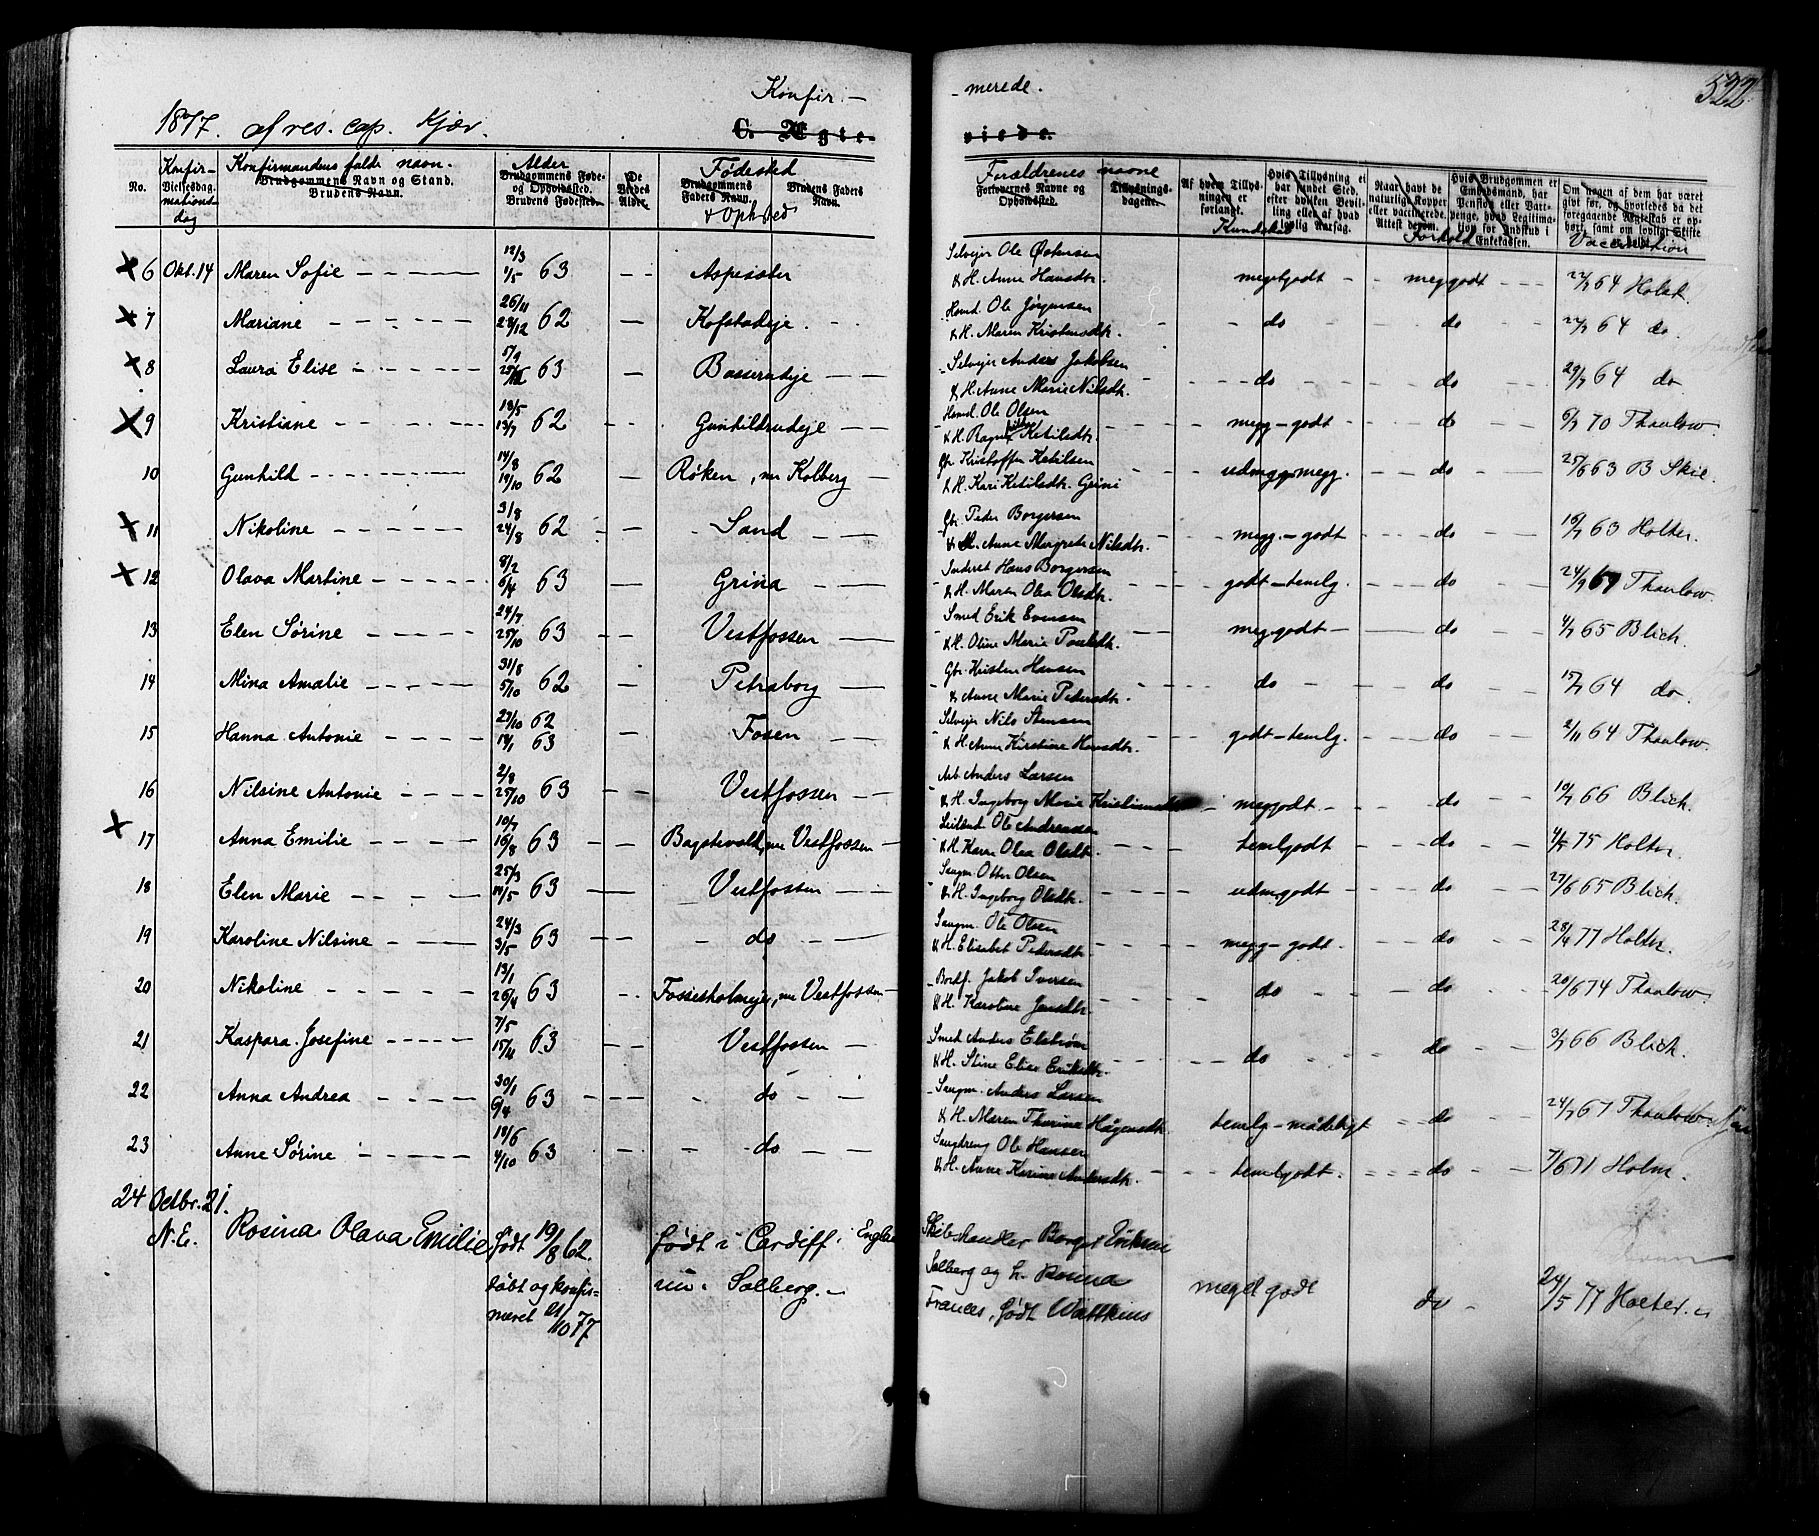 Konfir-
1877. af res. cap. Kjær.
C. Ægte-
No.
Konfir-
Vielsesdag.
mations
dag
Konfirmandens fulde navn.
Brudgommens Navn og Stand.
Brudens Navn.
Alder
Brudgommens Føde-
og Opholdssted.
Brudens Fødested.
De
Viedes
Alder.
Fødested
Brudgommens
Faders Navn.
Brudens Faders
Navn.
& Ophsted
6 Okt. 14 Maren Sofie 12/3 1/5 63 Aspesæter
7 Mariane 26/11 28/12 62 Kofstadeje
8 Laura Elise 5/9 63 Basserudeje
9 Kristiane 18/5 13/7 62 Gunhildrudeje
10 Gunhild 14/8 19/10 62 Røken, nu Kolberg
11 Nikoline 3/8 24/8 62 Sand
12 Olava Martine 8/2 6/4 63 Grina
13 Elen Sørine 24/7 25/10 63 Vestfossen
14 Mina Amalie 31/8 5/10 62 Petraborg
15 Hanna Antonie 23/10 62 18/1 63 Fosen
16 Nilsine Antonie 2/8 25/10 63 Vestfossen
17 Anna Emilie 10/7 16/8 63 Bagstevold, nu Vestfossen
18 Elen Marie 25/3 14/5 63 Vestfossen
19 Karoline Nilsine 24/3 3/5 63 do
20 Nikoline 13/1 26/4 63 Fossesholmeje, nu Vestfossen
21 Kaspara Josefine 7/5 15/4 63 Vestfossen
22 Anna Andrea 30/1 6/4 63 do
23 Anne Sørine 18/6 4/10 63 do
24 Octbr. 21. Rosina Olava Emilie født 19/8 62. født i Cardiff i Engla
N.E.
døbt og konfir- nu Solberg.
meret 21/10 77
-merede.
522
viede.
Forældrenes navne
Forlovernes Navne og
Opholdssted.
Tillysnings-
dagene.
Af hvem Tillys-
ningen er
forlangt.
Kundskab
Hvis Tillysning ei
har fundet Sted,
efter hvilken Bevil-
ling eller af hvad
lovlig Aarsag.
Naar havt de
naturlige Kopper
eller vaccinerede.
Attest derom.
Forhold
Hvis Brudgommen er
Embedsmand, har
Pension eller Vart-
penge, hvad Legitima-
tion for Indskud i
Enkekassen.
Om nogen af dem har været
gift før, og hvorledes da det
foregaaende Ægteskab er op-
hørt, samt om lovligt Skifte
er holdt.
Vaccination
Selvejer Ole Østensen
& H. Anne Hansdtr. meget godt meg godt 22/7 64 Holst.
Husmd. Ole Jørgensen
& H. Maren Kristensdtr. do do 22/7 64 do
Selvejer Anders Jakobsen
& H. Anne Marie Nilsdtr. do do 29/7 64 do
Husmd. Ole Olsen
& H. Ragnhild Ketilsdtr. megg-godt do 6/7 70 Thaulow.
Gbr. Kristoffer Ketilsen
& H. Kari Ketilsdtr. Grini udmgg-megg. do 25/6 63 B Skie.
Gbr. Peder Borgersen
& H. Anne Margrete Nilsdtr. megg.-godt do 16/7 63 Holter.
Inderst Hans Borgersen
& H. Maren Olea Olsdtr. godt-temlg. do 24/7 67 Thaulow
Smed Erik Evensen
& H. Oline Marie Paulsdtr. meg godt do 4/7 65 Blich.
Gbr. Kristen Hansen
& Anne Marie Pedersdtr. do do 15/7 64 do
Selvejer Nils Stensen
& H. Anne Kirstine Hansdtr. godt-temlg. do 2/11 64 Thaulow.
Arb. Anders Larsen
& H. Ingeborg Marie Kristiansdtr meg godt do 10/7 66 Blich.
Ole Andreassen
& H. Karen Olea Olsdtr. temlgodt do 4/5 75 Holter
Saugm. Otter Olsen
& H. Ingeborg Olsdtr. udm. godt do 27/6 65 Blich.
Saugm. Ole Olsen
& H. Elisabet Pedersdtr. megg-godt do 28/4 77 Holter
Bordf. Jakob Iversen
& H. Karoline Jensdtr. do do 20/6 74 Thaulow
Smed Anders Elstrøm
& H. Stine Elise Eriksdtr. do do 3/7 66 Blich.
Saugm. Anders Larsen
& H. Maren Thorine Hågensdtr. temlg-mådeligt do 24/7 67 Thaulow
Saugdreng Ole Hansen
& H. Anne Karine Andersdtr. temlgodt do 7/6 71 Holm
Skibshandler Borger Eriksen
Solberg og h. Rosina meget godt do 24/5 77 Holter.
Frances, født Wattkins